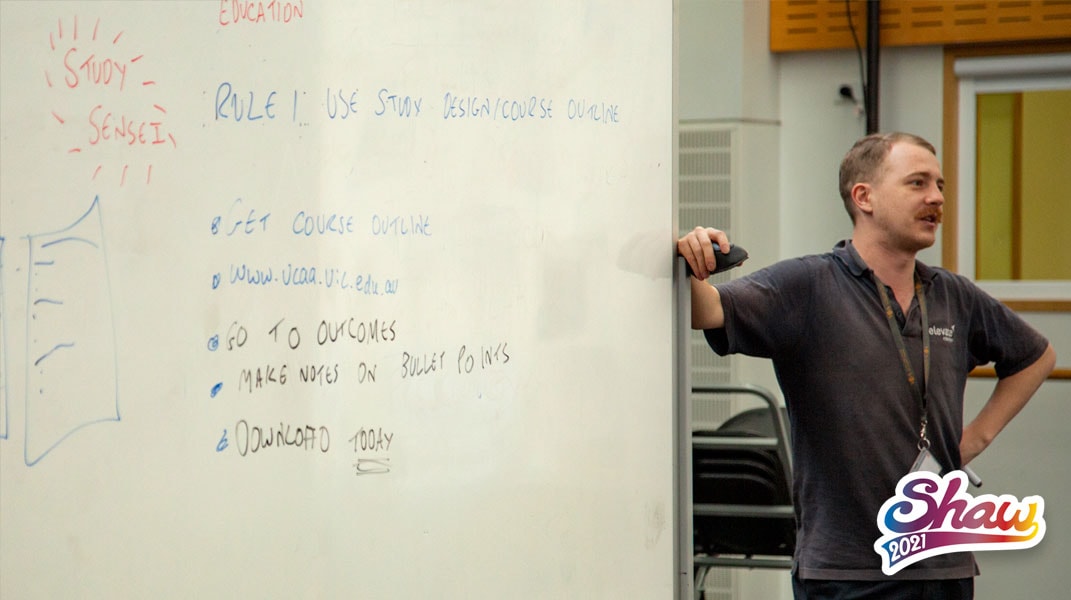 EDUCATION
STUDY
SENSEI
RULE 1: USE STUDY DESIGN/COURSE OUTLINE
GET COURSE OUTLINE
www.vcaa.vic.edu.au
GO TO OUTCOMES
MAKE NOTES ON BULLET POINTS
DOWNLOAD TODAY
elevate
Shaw
2021